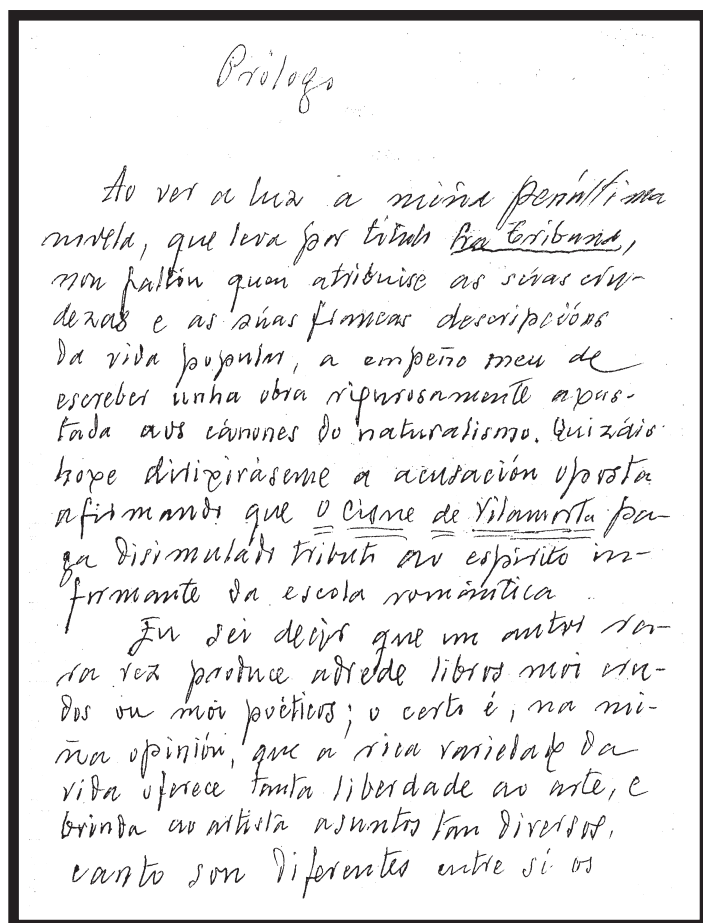 Prólogo
Ao ver a luz a miña penúltima
novela, que leva por título La Tribuna,
non faltou quen atribuise as súas cru-
dezas e as súas francas descripcións
da vida popular, a empeño meu de
escreber unha obra rigurosamente axus-
tada aos cánones do naturalismo. Quizáis
hoxe dirixiráseme a acusación oposta
afirmando que O Cisne de Vilamorta pa-
ga disimulado tributo ao espírito in-
formante da escola romántica
Eu sei decir que un autor ra-
ra vez produce adrede libros moi cru-
dos ou moi poéticos; o certo é, na mi-
ña opinión, que a rica variedade da
vida oferece tanta liberdade ao arte, e
brinda ao artista asuntos tan diversos,
canto son diferentes entre si os